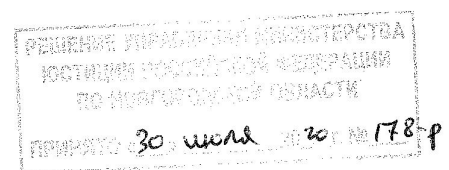 РЕШЕНИЕ УПРАВЛЕНИЯ МИНИСТЕРСТВА
ЮСТИЦИИ РОССИЙСКОЙ ФЕДЕРАЦИИ
ПО НОВГОРОДСКОЙ ОБЛАСТИ
ПРИНЯТО «30» июля 2020 г. № 178-р